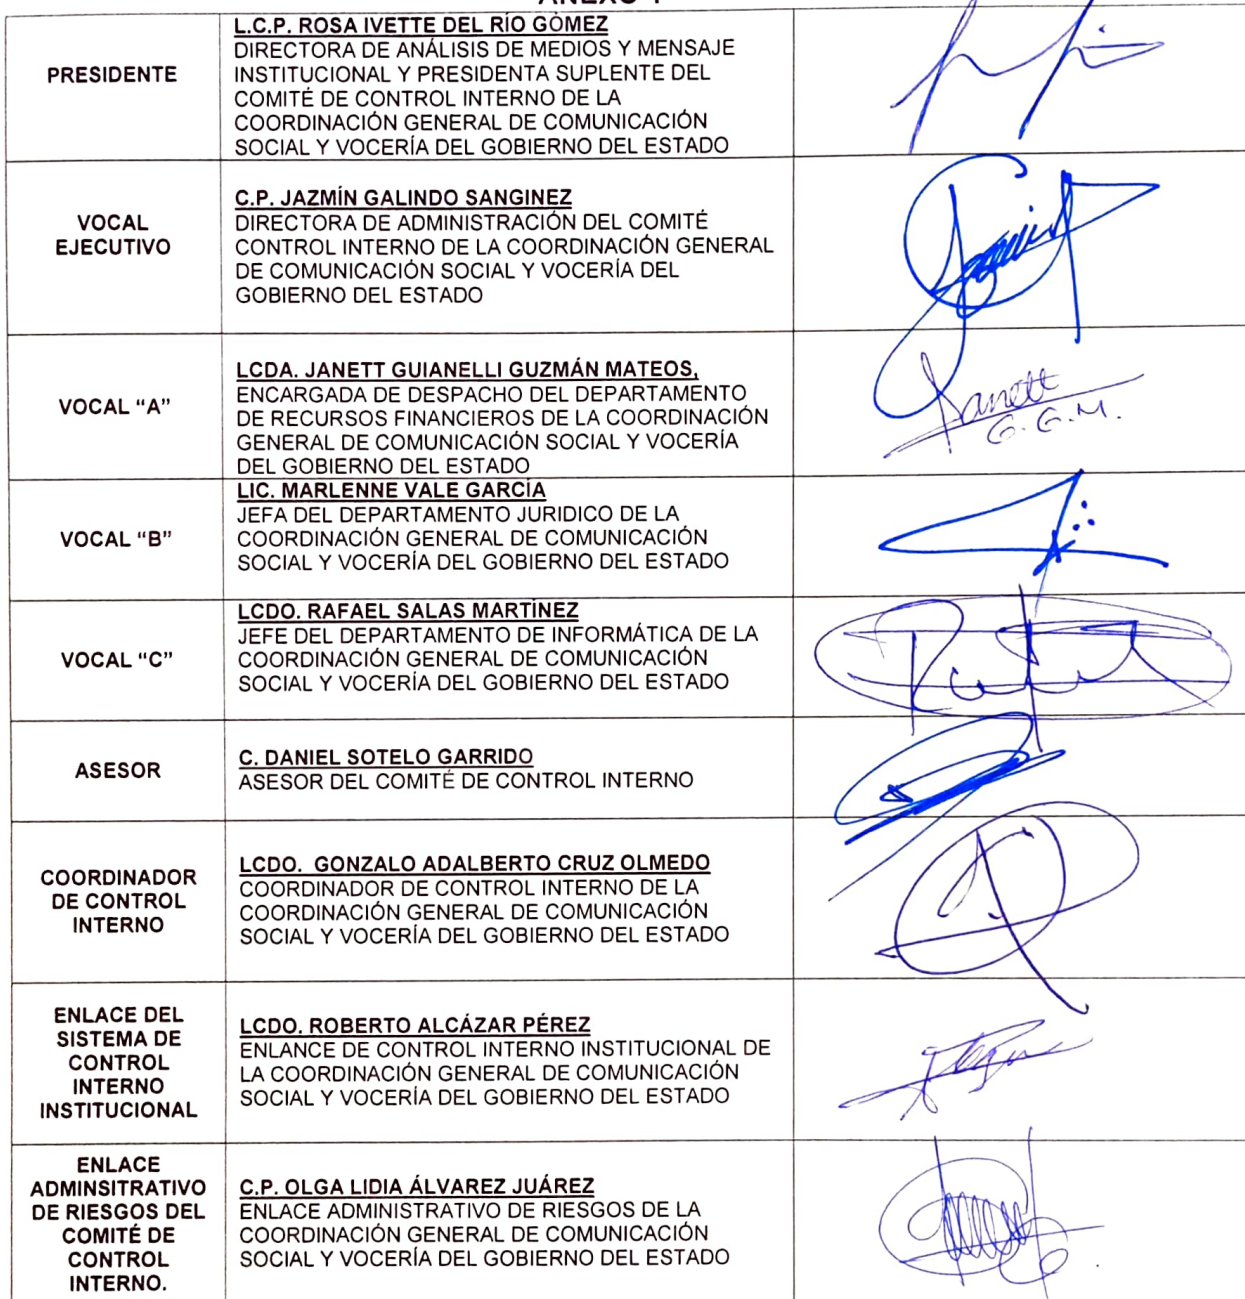 PRESIDENTE
L.C.P. ROSA IVETTE DEL RÍO GÓMEZ
DIRECTORA DE ANÁLISIS DE MEDIOS Y MENSAJE
INSTITUCIONAL Y PRESIDENTA SUPLENTE DEL
COMITÉ DE CONTROL INTERNO DE LA
COORDINACIÓN GENERAL DE COMUNICACIÓN
SOCIAL Y VOCERÍA DEL GOBIERNO DEL ESTADO
VOCAL
EJECUTIVO
C.P. JAZMÍN GALINDO SANGINEZ
DIRECTORA DE ADMINISTRACIÓN DEL COMITÉ
CONTROL INTERNO DE LA COORDINACIÓN GENERAL
DE COMUNICACIÓN SOCIAL Y VOCERÍA DEL
GOBIERNO DEL ESTADO
VOCAL “A”
LCDA. JANETT GUIANELLI GUZMÁN MATEOS,
ENCARGADA DE DESPACHO DEL DEPARTAMENTO
DE RECURSOS FINANCIEROS DE LA COORDINACIÓN
GENERAL DE COMUNICACIÓN SOCIAL Y VOCERÍA
DEL GOBIERNO DEL ESTADO
Janett
G. G. M.
VOCAL “B”
LIC. MARLENNE VALE GARCÍA
JEFA DEL DEPARTAMENTO JURIDICO DE LA
COORDINACIÓN GENERAL DE COMUNICACIÓN
SOCIAL Y VOCERÍA DEL GOBIERNO DEL ESTADO
VOCAL “C”
LCDO. RAFAEL SALAS MARTÍNEZ
JEFE DEL DEPARTAMENTO DE INFORMÁTICA DE LA
COORDINACIÓN GENERAL DE COMUNICACIÓN
SOCIAL Y VOCERÍA DEL GOBIERNO DEL ESTADO
ASESOR
C. DANIEL SOTELO GARRIDO
ASESOR DEL COMITÉ DE CONTROL INTERNO
COORDINADOR
DE CONTROL
INTERNO
LCDO. GONZALO ADALBERTO CRUZ OLMEDO
COORDINADOR DE CONTROL INTERNO DE LA
COORDINACIÓN GENERAL DE COMUNICACIÓN
SOCIAL Y VOCERÍA DEL GOBIERNO DEL ESTADO
ENLACE DEL
SISTEMA DE
CONTROL
INTERNO
INSTITUCIONAL
LCDO. ROBERTO ALCÁZAR PÉREZ
ENLANCE DE CONTROL INTERNO INSTITUCIONAL DE
LA COORDINACIÓN GENERAL DE COMUNICACIÓN
SOCIAL Y VOCERÍA DEL GOBIERNO DEL ESTADO
ENLACE
ADMINSITRATIVO
DE RIESGOS DEL
COMITÉ DE
CONTROL
INTERNO.
C.P. OLGA LIDIA ÁLVAREZ JUÁREZ
ENLACE ADMINISTRATIVO DE RIESGOS DE LA
COORDINACIÓN GENERAL DE COMUNICACIÓN
SOCIAL Y VOCERÍA DEL GOBIERNO DEL ESTADO